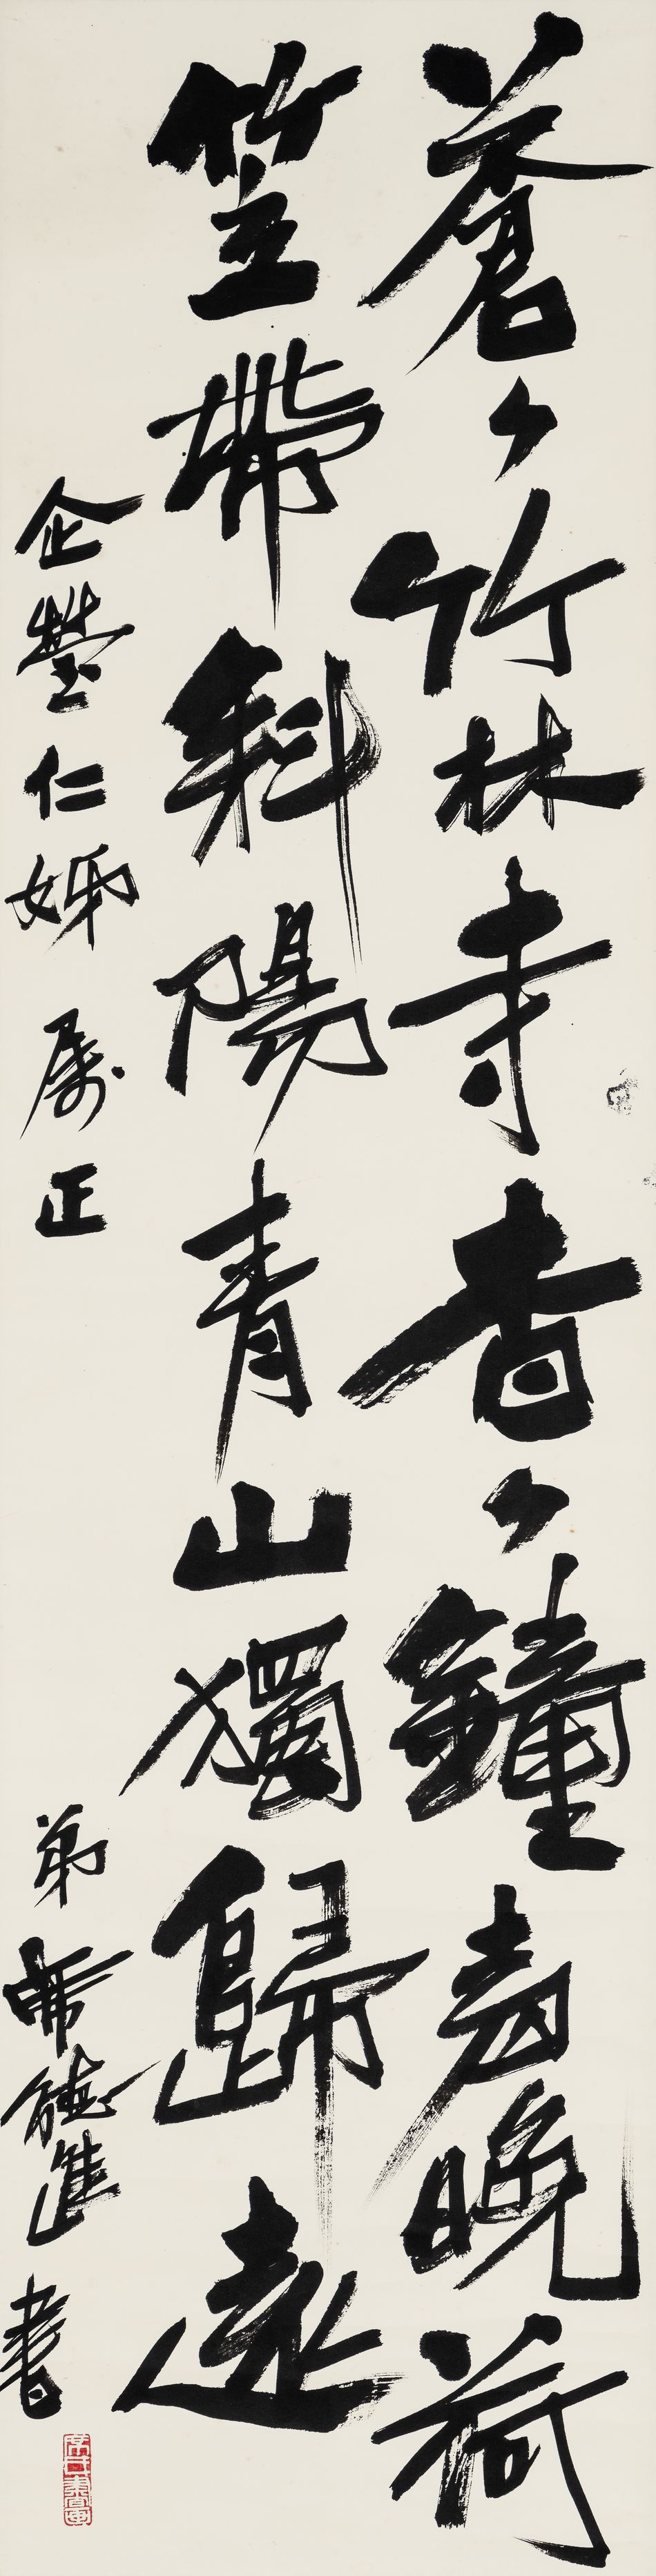 蒼々竹林寺杳々鐘声晚荷
笠帶斜陽青山獨歸遠
企瑩仁姊 屬正
弟席德進書